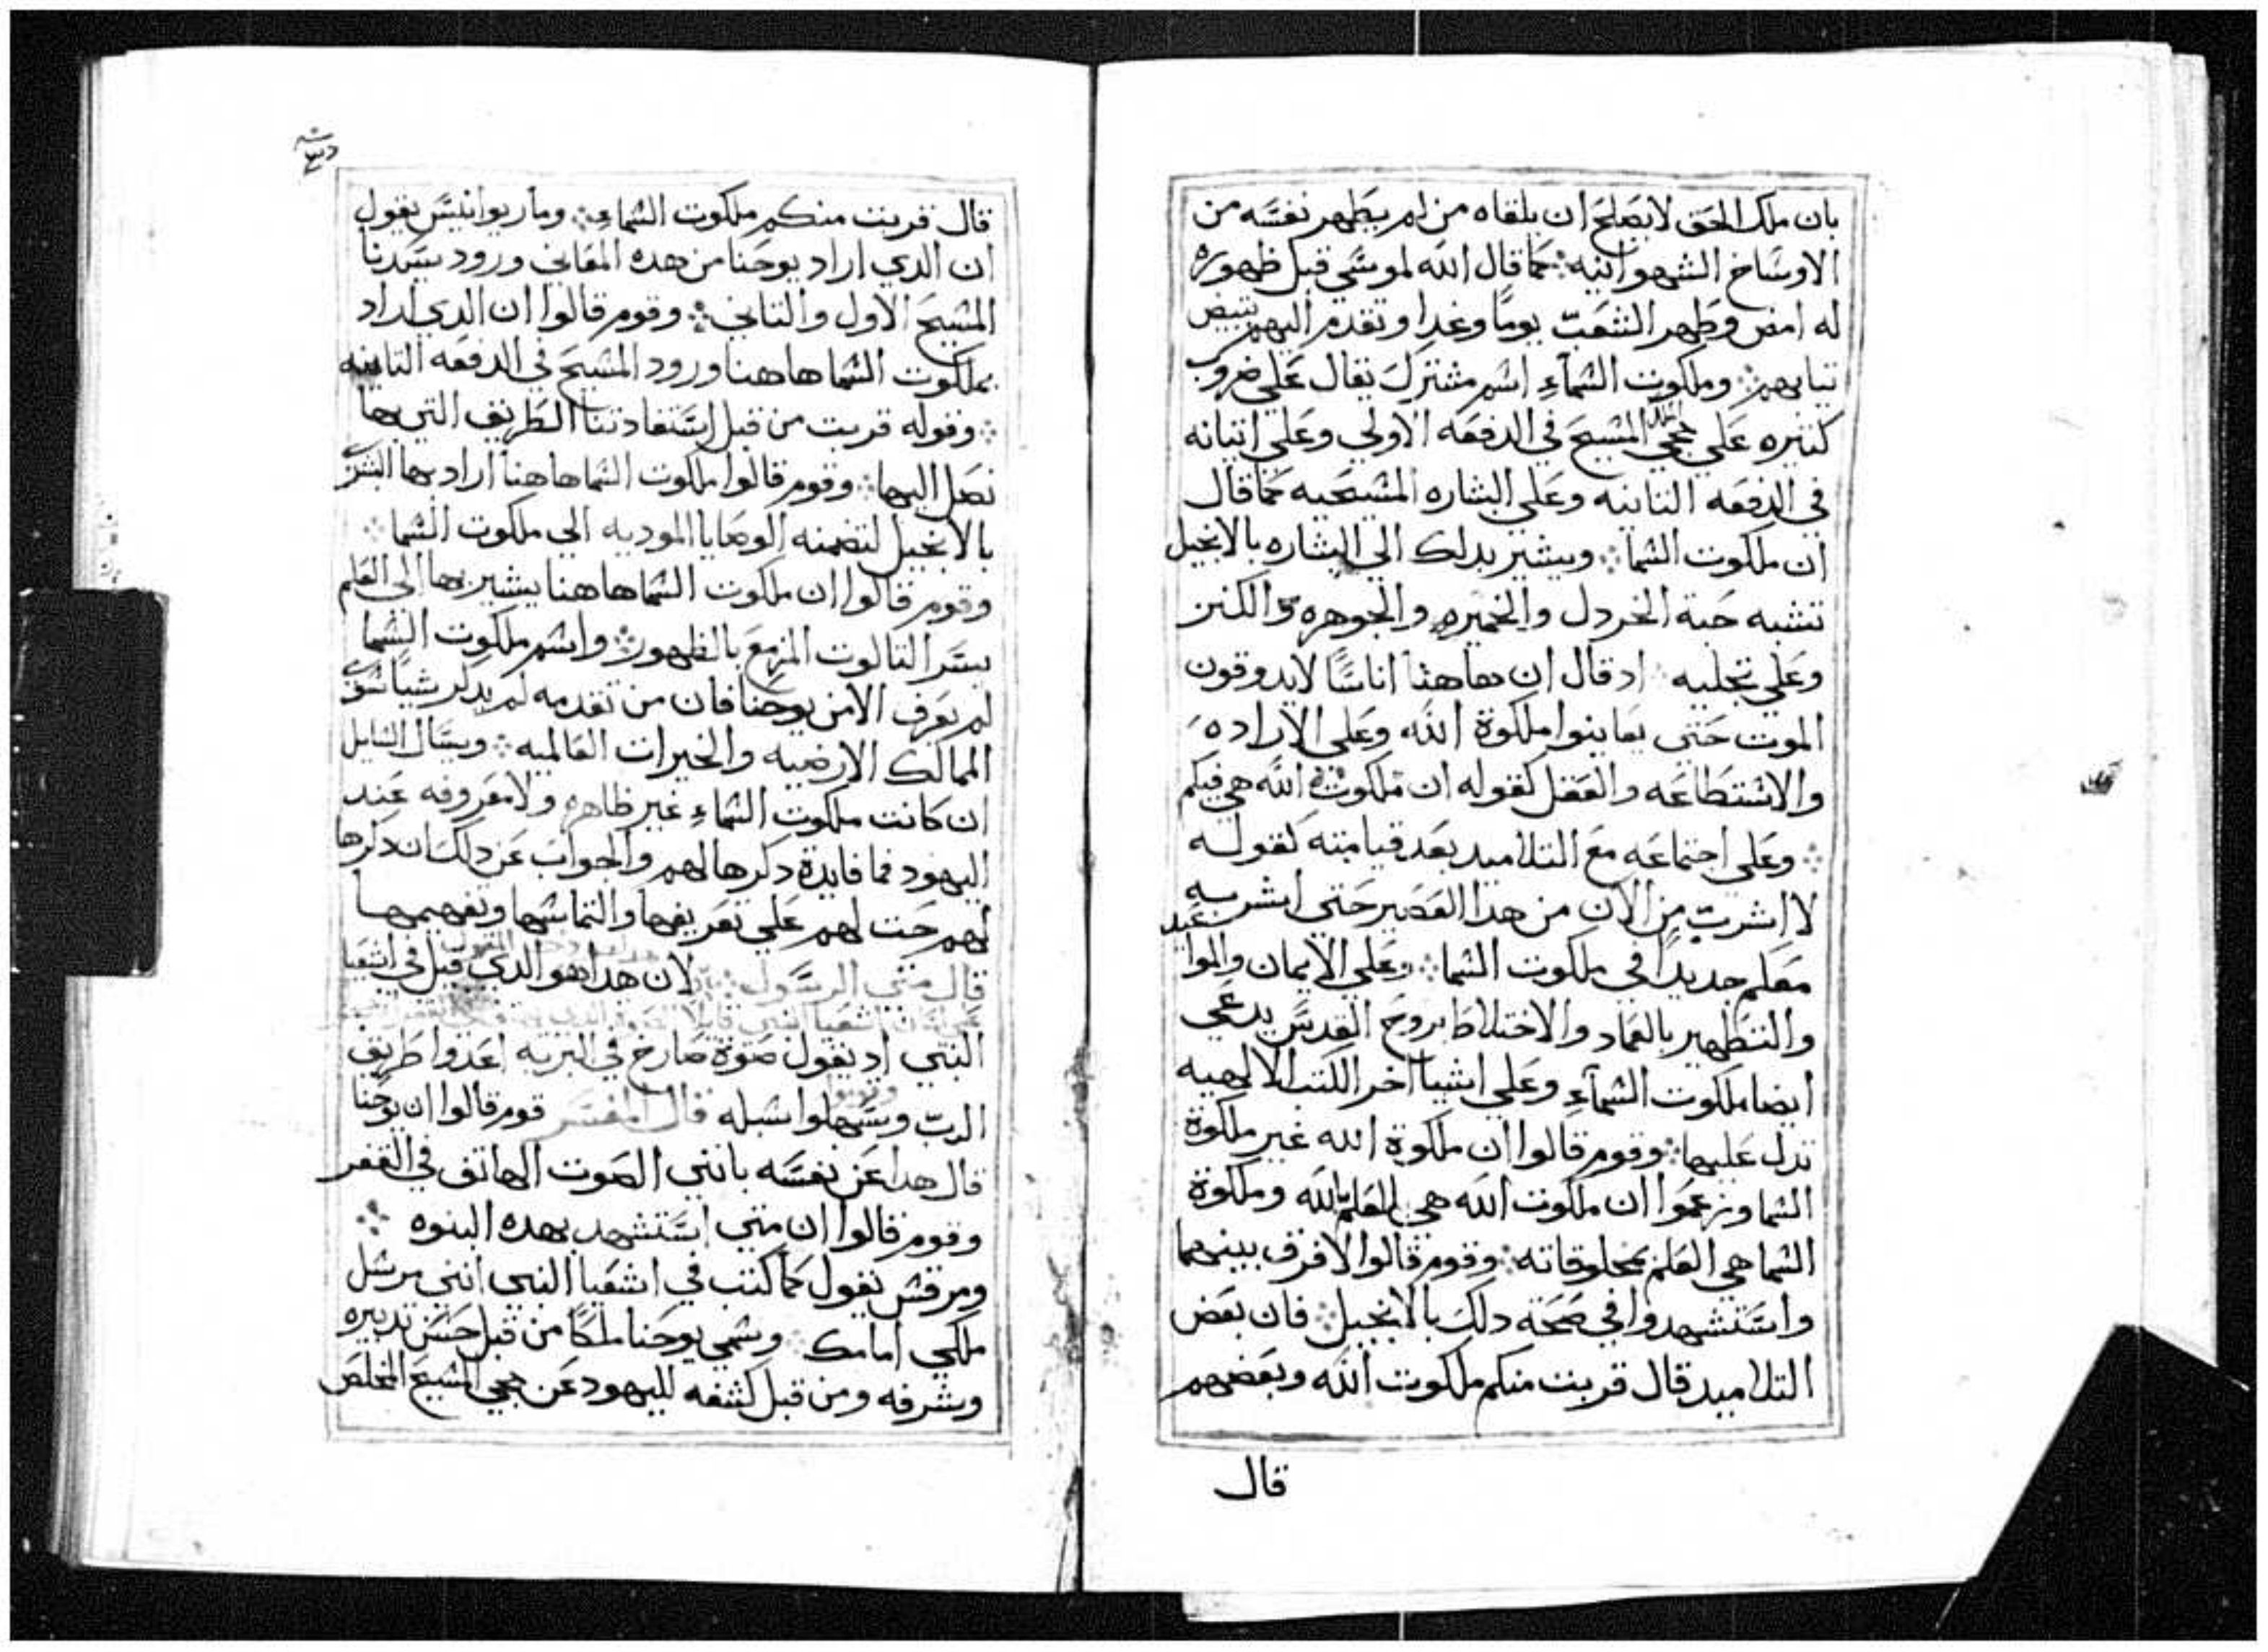 بان ملك الحق لا يصلح ان يلقاه من لم يطهر نفسه من
الاوساخ الشهوانيه ⁘ كما قال الله لموسي قبل ظهوره
له امض وطهر الشعب يوما وغدا وتقدم اليهم تبيض
تيابهم ⁘ وملكوت السماء اسم مشترك يقال علي ضروب
كتيره علي مجي المسيح في الدفعه الاولي وعلي اتيانه
في الدفعه التانيه وعلي البشاره المسيحيه كما قال
ان ملكوت السما ⁘ ويشير بدلك الي البشاره بالانجيل
تشبه حبة الخردل والخميره والجوهره والكنز
وعلي تجليه ⁘ اد قال ان هاهنا اناسًا لا يدوقون
الموت حتي يعاينوا ملكوة الله وعلي الاراده
والاستطاعه والعقل كقوله ان ملكوت الله هي فيكم
⁘ وعلي اجتماعه مع التلاميد بعد قيامته كقوله
لا اشرب من الان من هدا العصير حتي اشربه
معكم جديدا في ملكوت السما ⁘ وعلي الايمان والمواعيد
والتطهير بالعماد والاختلاط بروح القدس يدعي
ايضا ملكوت السماء وعلي اشيا اخر الكتب الالهيه
تدل عليها ⁘ وقوم قالوا ان ملكوة الله غير ملكوة
السما وزعموا ان ملكوت الله هي العلم بالله وملكوة
السما هي العلم بمخلوقاته ⁘ وقوم قالوا لا فرق بينهما
واستشهدوا في صحة دلك بالانجيل ⁘ فان بعض
التلاميد قال قربت منكم ملكوت الله وبعضهم
قال
قال قربت منكم ملكوت السماء ⁘ ومار يوانيس يقول
ان الدي اراد يوحنا من هده المعاني ورود سيدنا
المسيح الاول والتاني ⁘ وقوم قالوا ان الدي اراد
بملكوت السما هاهنا ورود المسيح في الدفعه التانيه
⁘ وقوله قربت من قبل استفادتنا الطريق التي بها
نصل اليها ⁘ وقوم قالوا ملكوت السما هاهنا اراد بها البشري
بالانجيل لتضمنه الوصايا الموديه الي ملكوت السما ⁘
وقوم قالوا ان ملكوت السما هاهنا يشير بها الي العلم
بسر التالوت المزمع بالظهور ⁘ واسم ملكوت السما
لم يعرف الا من يوحنا فان من تقدمه لم يدكر شيا سوي
الممالك الارضيه والخيرات العالميه ⁘ ويسال السايل
ان كانت ملكوت السماء غير ظاهره ولا معروفه عند
اليهود فما فايدة دكرها لهم والجواب عن دلك ان دكرها
لهم حت لهم علي تعريفها والتماسها وتفهيمها
قال متي الرسول ⁘ لان هدا هو الدي قيل في اشعيا
النبي اد يقول صوة صارخ في البريه اعدوا طريق
الرب وسهلوا سبله قال المفسر قوم قالوا ان يوحنا
قال هدا عن نفسه بانني الصوت الهاتف في القفر
وقوم قالوا ان متي استشهد بهده النبوه ⁘
ومرقس يقول كما كتب في اشعيا النبي انني مرسل
ملكي امامك ⁘ وسمي يوحنا ملكًا من قبل حسن تدبيره
وشرفه ومن قبل كشفه لليهود عن مجي المسيح المخلص